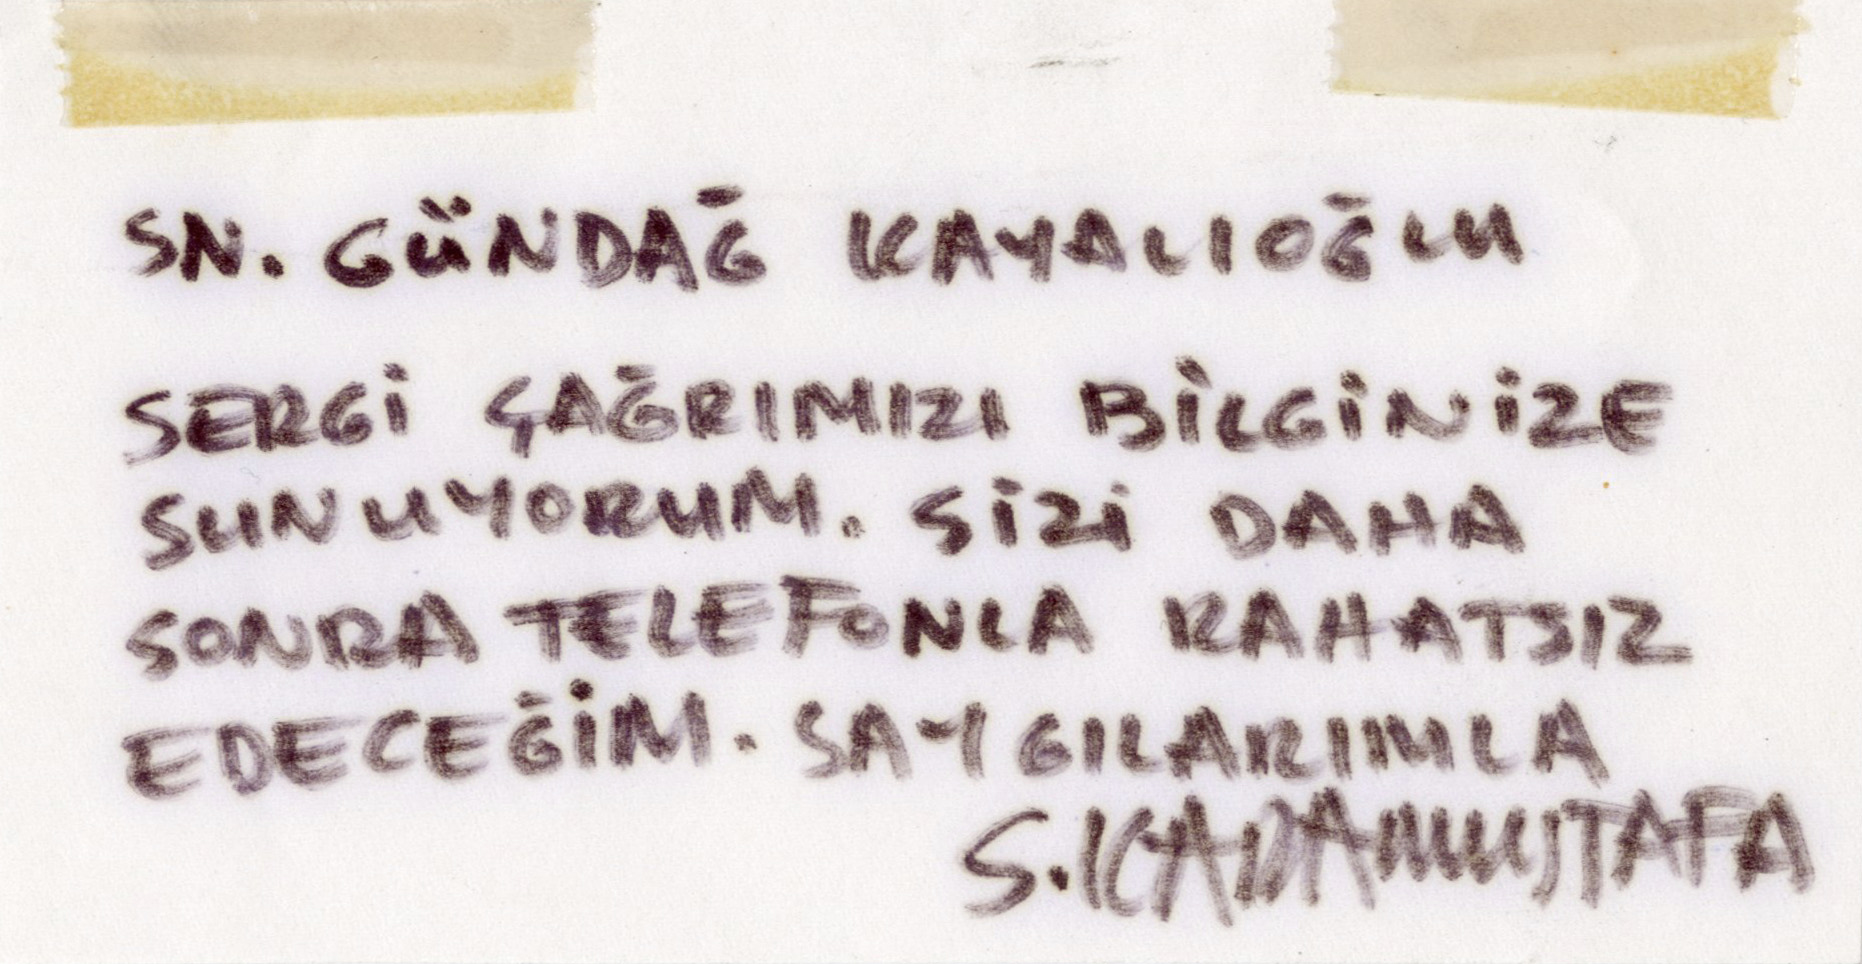 SN. GÜNDAĞ KAYALIOĞLU
SERGİ ÇAĞRIMIZI BİLGİNİZE
SUNUYORUM. SİZİ DAHA
SONRA TELEFONLA RAHATSIZ
EDECEĞİM. SAYGILARIMLA
S.KARAMUSTAFA